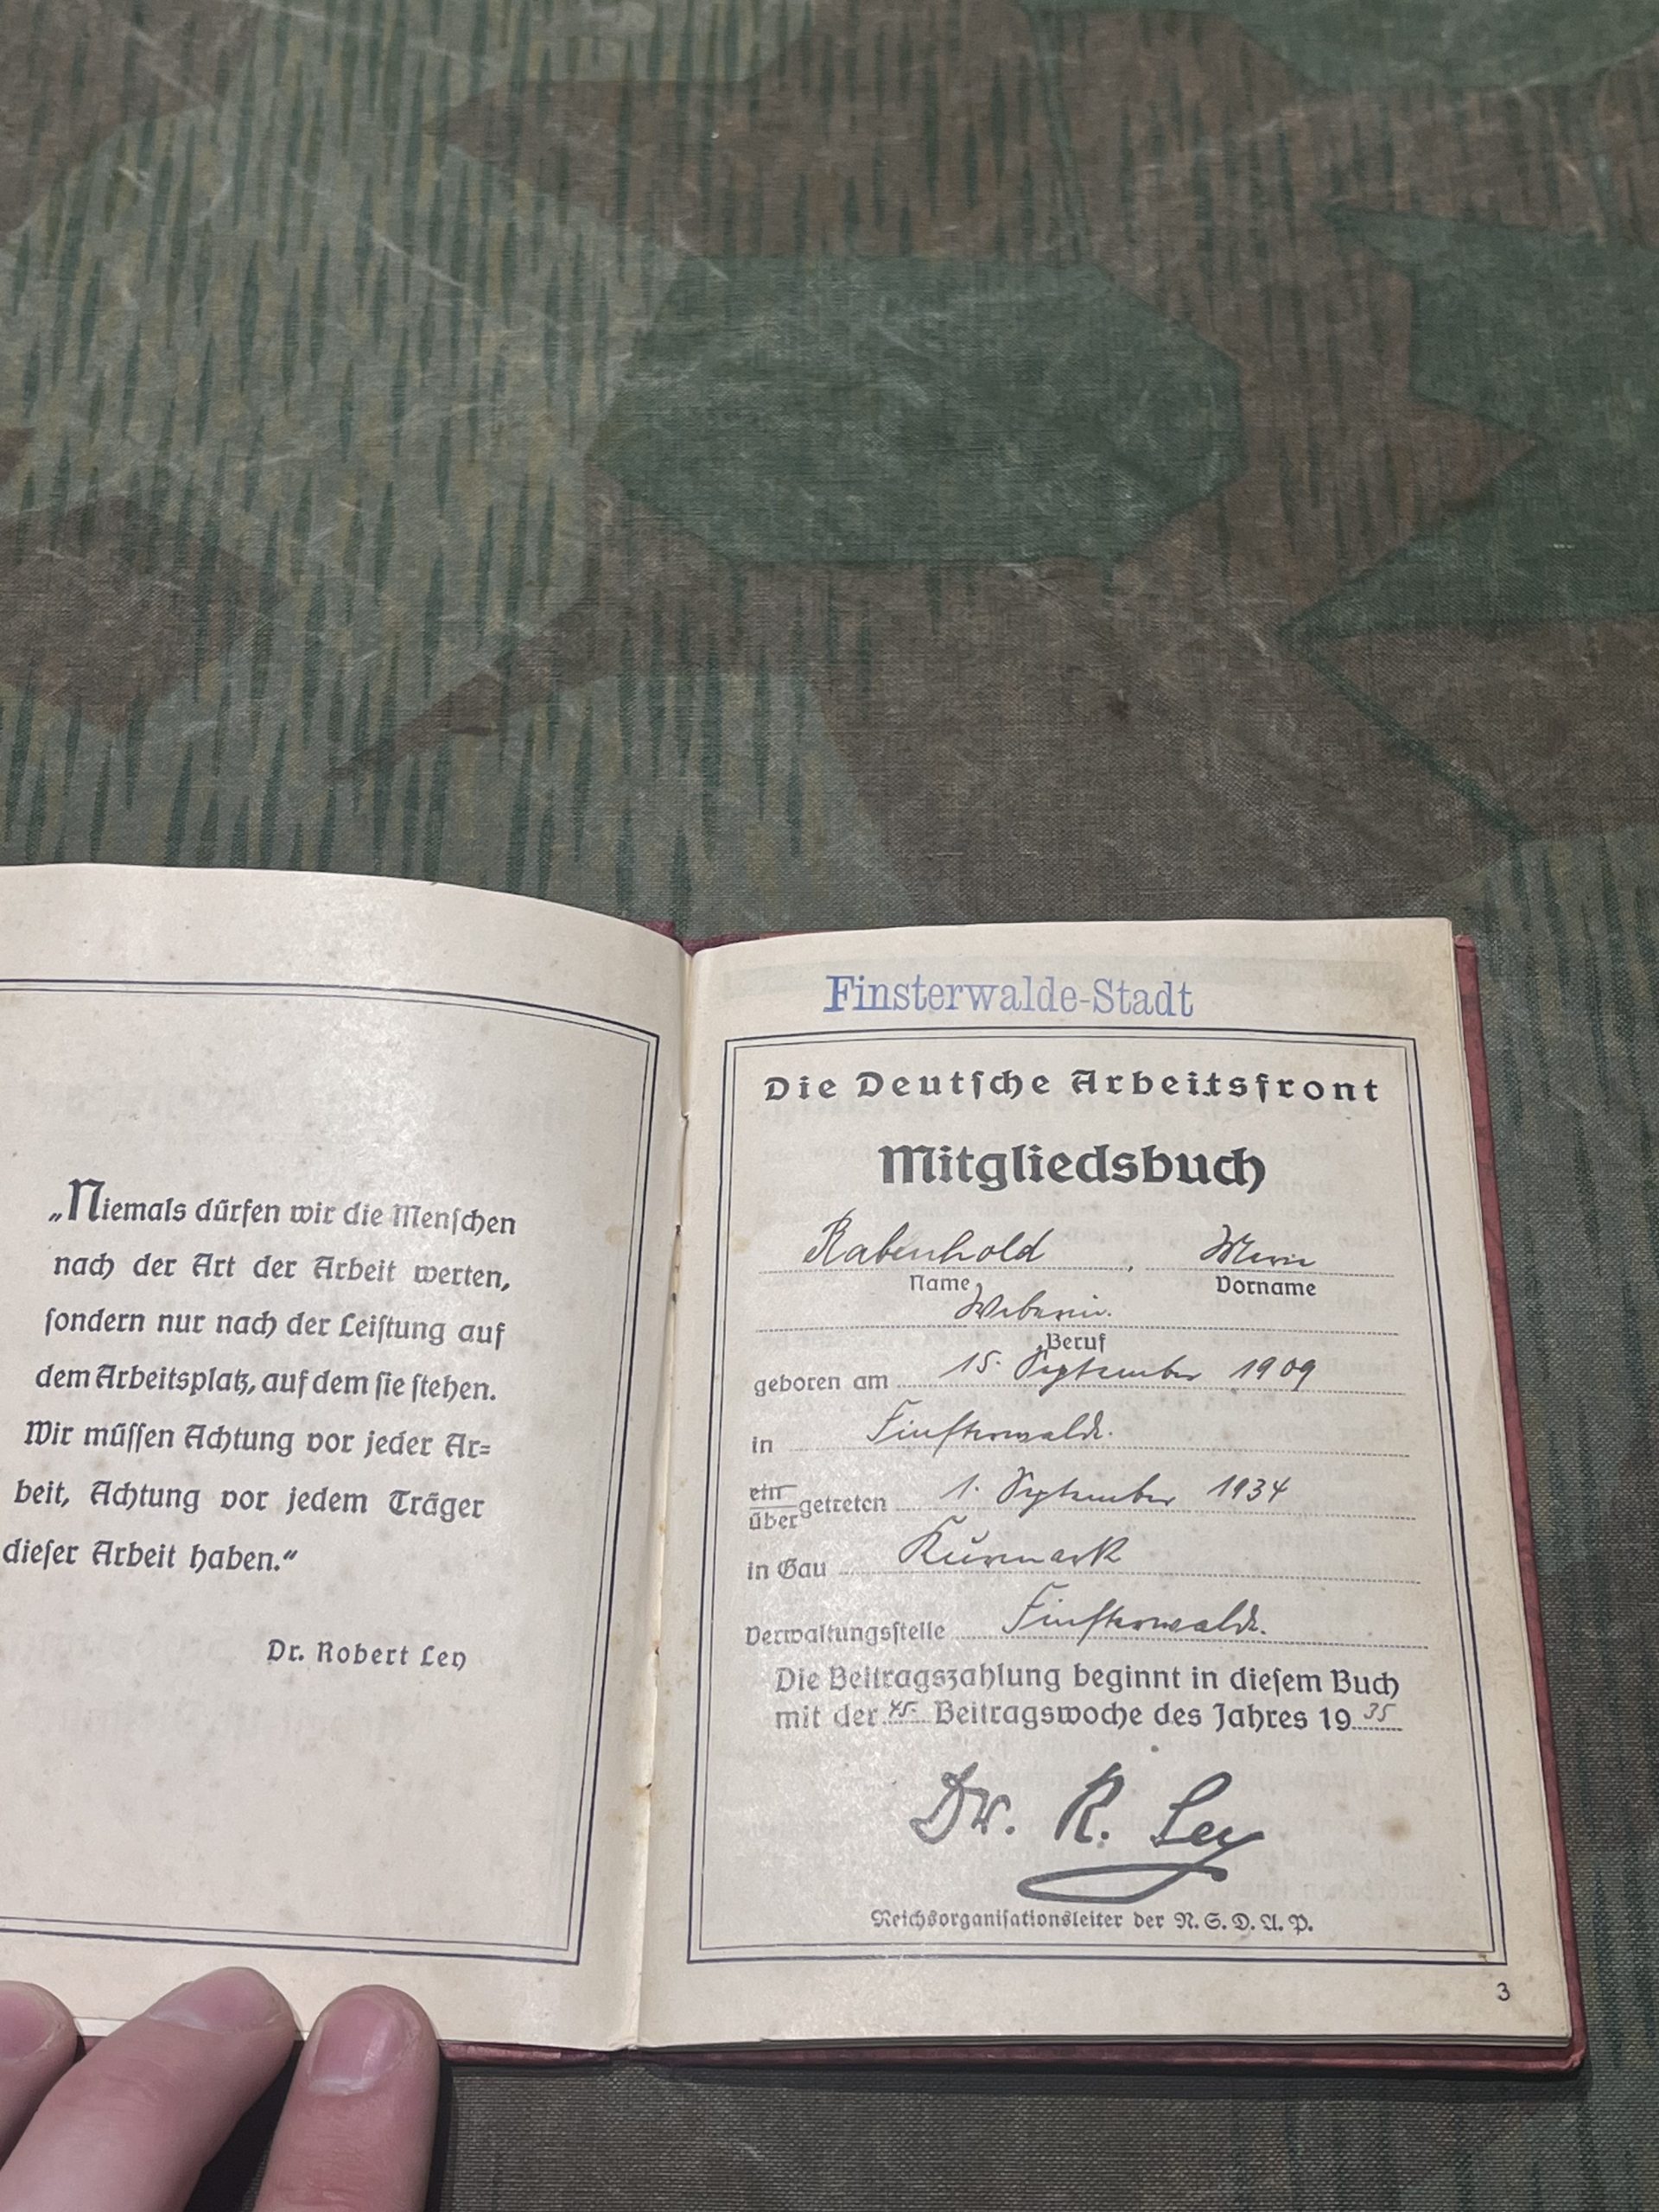 „Niemals dürfen wir die Menſchen
nach der Art der Arbeit werten,
ſondern nur nach der Leiſtung auf
dem Arbeitsplatz, auf dem ſie ſtehen.
Wir müſſen Achtung vor jeder Ar=
beit, Achtung vor jedem Träger
dieſer Arbeit haben.“
Dr. Robert Ley
Finsterwalde-Stadt
Die Deutſche Arbeitsfront
Mitgliedsbuch
Rabenhold,
Name Vorname
Weberin.
Beruf
geboren am 15. September 1909
in Finſterwalde.
ein
über getreten 1. September 1934
in Gau Kurmark
Verwaltungsſtelle Finſterwalde.
Die Beitragszahlung beginnt in dieſem Buch
mit der 45. Beitragswoche des Jahres 1935
Dr. R. Ley
Reichsorganiſationsleiter der N. S. D. A. P.
3